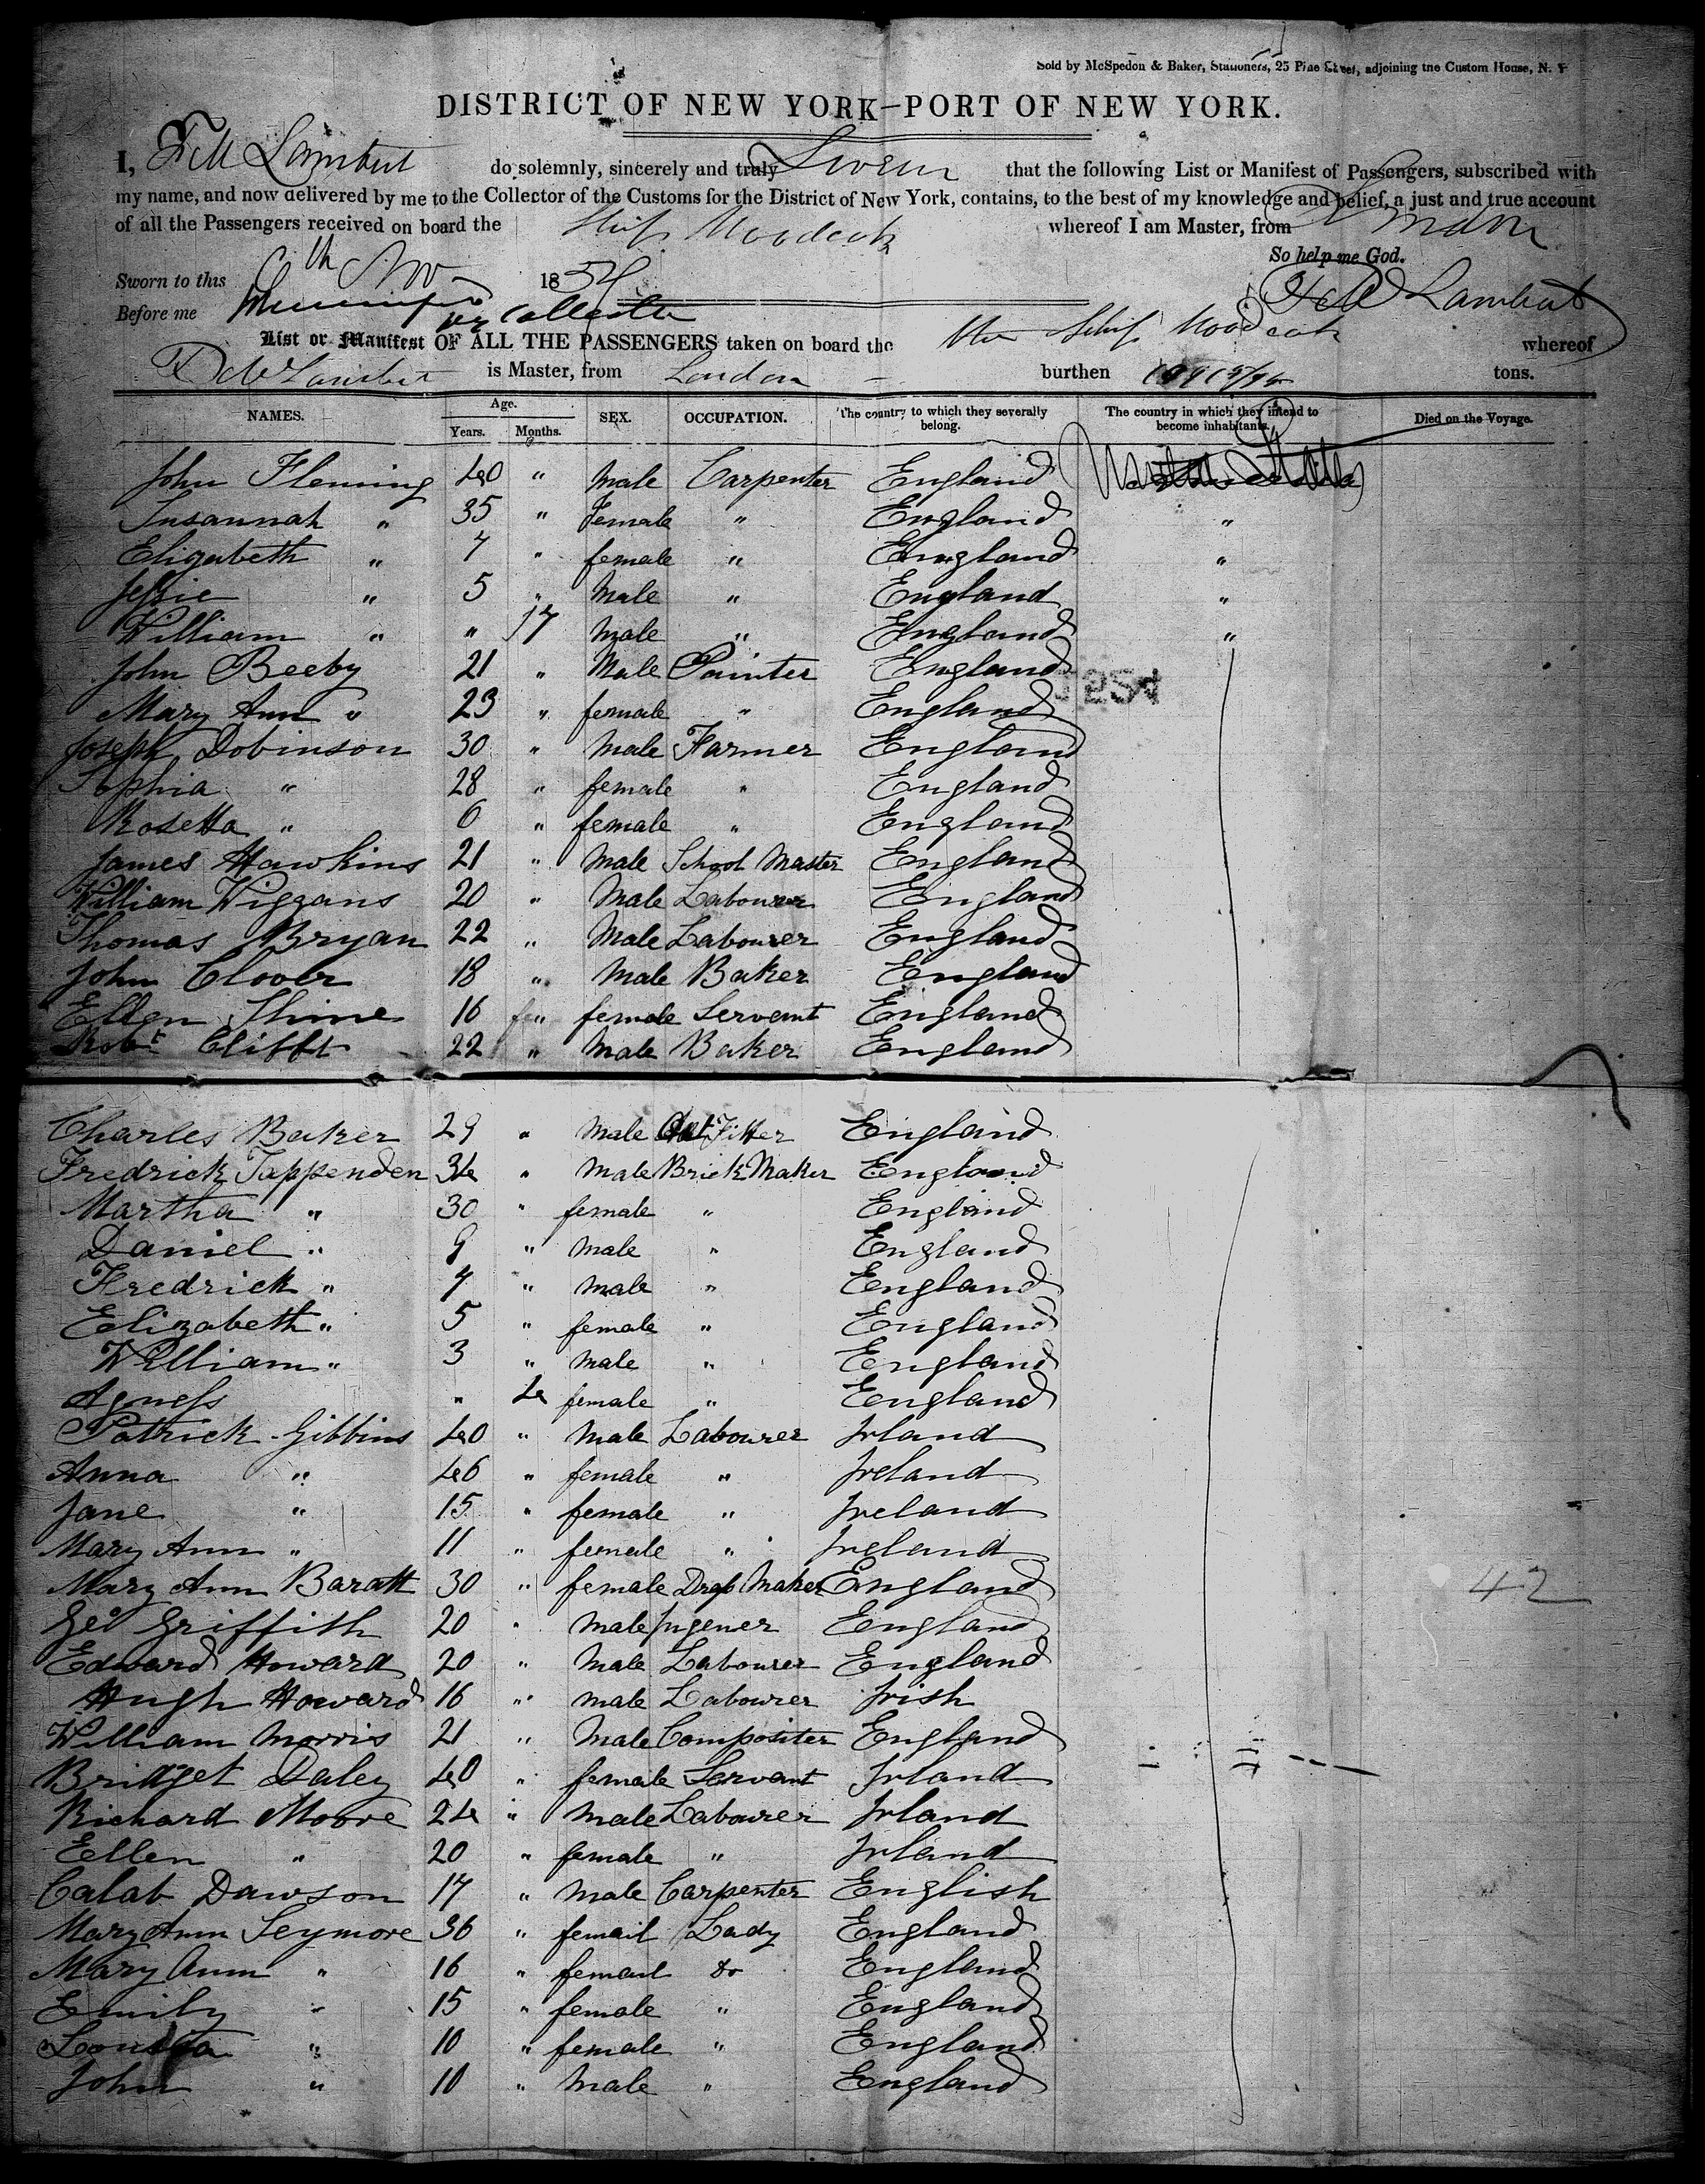 Sold by McSpedon & Baker, Stationers, 25 Pine Street, adjoining the Custom House, N. Y
DISTRICT OF NEW YORK—PORT OF NEW YORK.
I, Lambert do solemnly, sincerely and truly Swear that the following List or Manifest of Passengers, subscribed with
my name, and now delivered by me to the Collector of the Customs for the District of New York, contains, to the best of my knowledge and belief, a just and true account
of all the Passengers received on board the Ship Woodcock whereof I am Master, from London
So help me God.
Sworn to this 6th Nov 1854
Before me Collector Lambert
List or Manifest OF ALL THE PASSENGERS taken on board the the Ship Woodcock whereof
Lambert is Master, from London burthen tons.
NAMES. Age. Years. Months. SEX. OCCUPATION. The country to which they severally belong. The country in which they intend to become inhabitants. Died on the Voyage.
John Fleming 40 " Male Carpenter England United States
Susannah " 35 " Female " England "
Elizabeth " 7 " female " England "
Jessie " 5 " Male " England "
William " " 17 Male " England "
John Beeby 21 " Male Painter England
Mary Ann " 23 " female " England
Joseph Dobinson 30 " Male Farmer England
Sophia " 28 " female " England
Rosetta " 6 " female " England
James Hawkins 21 " Male School Master England
William Wiggans 20 " Male Labourer England
Thomas Bryan 22 " Male Labourer England
John Clover 18 " Male Baker England
Ellen Shine 16 " female Servant England
Robt Clifft 22 " Male Baker England
Charles Baker 29 " Male Fitter England
Fredrick Tappenden 34 " Male Brick Maker England
Martha " 30 " female " England
Daniel " 9 " Male " England
Fredrick " 7 " Male " England
Elizabeth " 5 " female " England
William " 3 " Male " England
Agness " 4 female " England
Patrick Gibbins 40 " Male Labourer Irland
Anna " 46 " female " Ireland
Jane " 15 " female " Ireland
Mary Ann " 11 " female " Ireland
Mary Ann Baratt 30 " female Drap Maker England
42
Geo Griffith 20 " Male Ingener England
Edward Howard 20 " Male Labourer England
Hugh Howard 16 " male Labourer Irish
William Morris 21 " Male Compositer England
Bridget Daley 40 " female Servant Irland
Richard Moore 24 " Male Labourer Irland
Ellen " 20 " female " Irland
Calab Dawson 17 " Male Carpenter English
Mary Ann Seymore 36 " femail Lady England
Mary Ann " 16 " femail do England
Emily " 15 " female " England
Louisa " 10 " female " England
John " 10 " Male " England